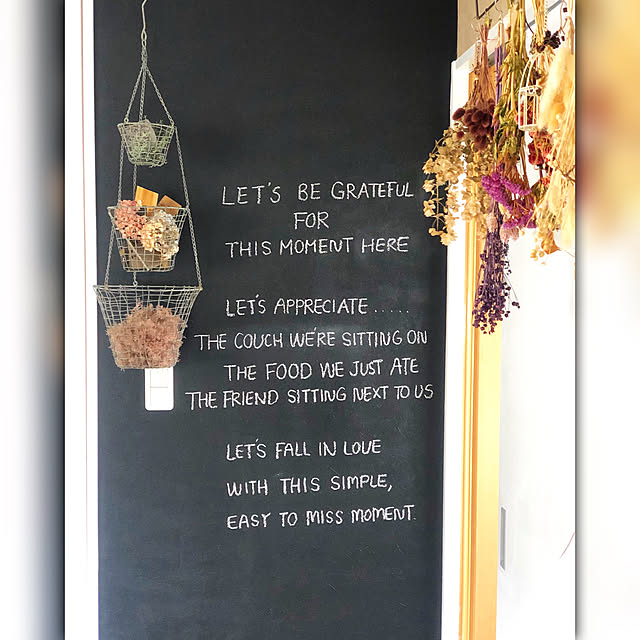 LET'S BE GRATEFUL
FOR
THIS MOMENT HERE
LET'S APPRECIATE.....
THE COUCH WE'RE SITTING ON
THE FOOD WE JUST ATE
THE FRIEND SITTING NEXT TO US
LET'S FALL IN LOVE
WITH THIS SIMPLE,
EASY TO MISS MOMENT.